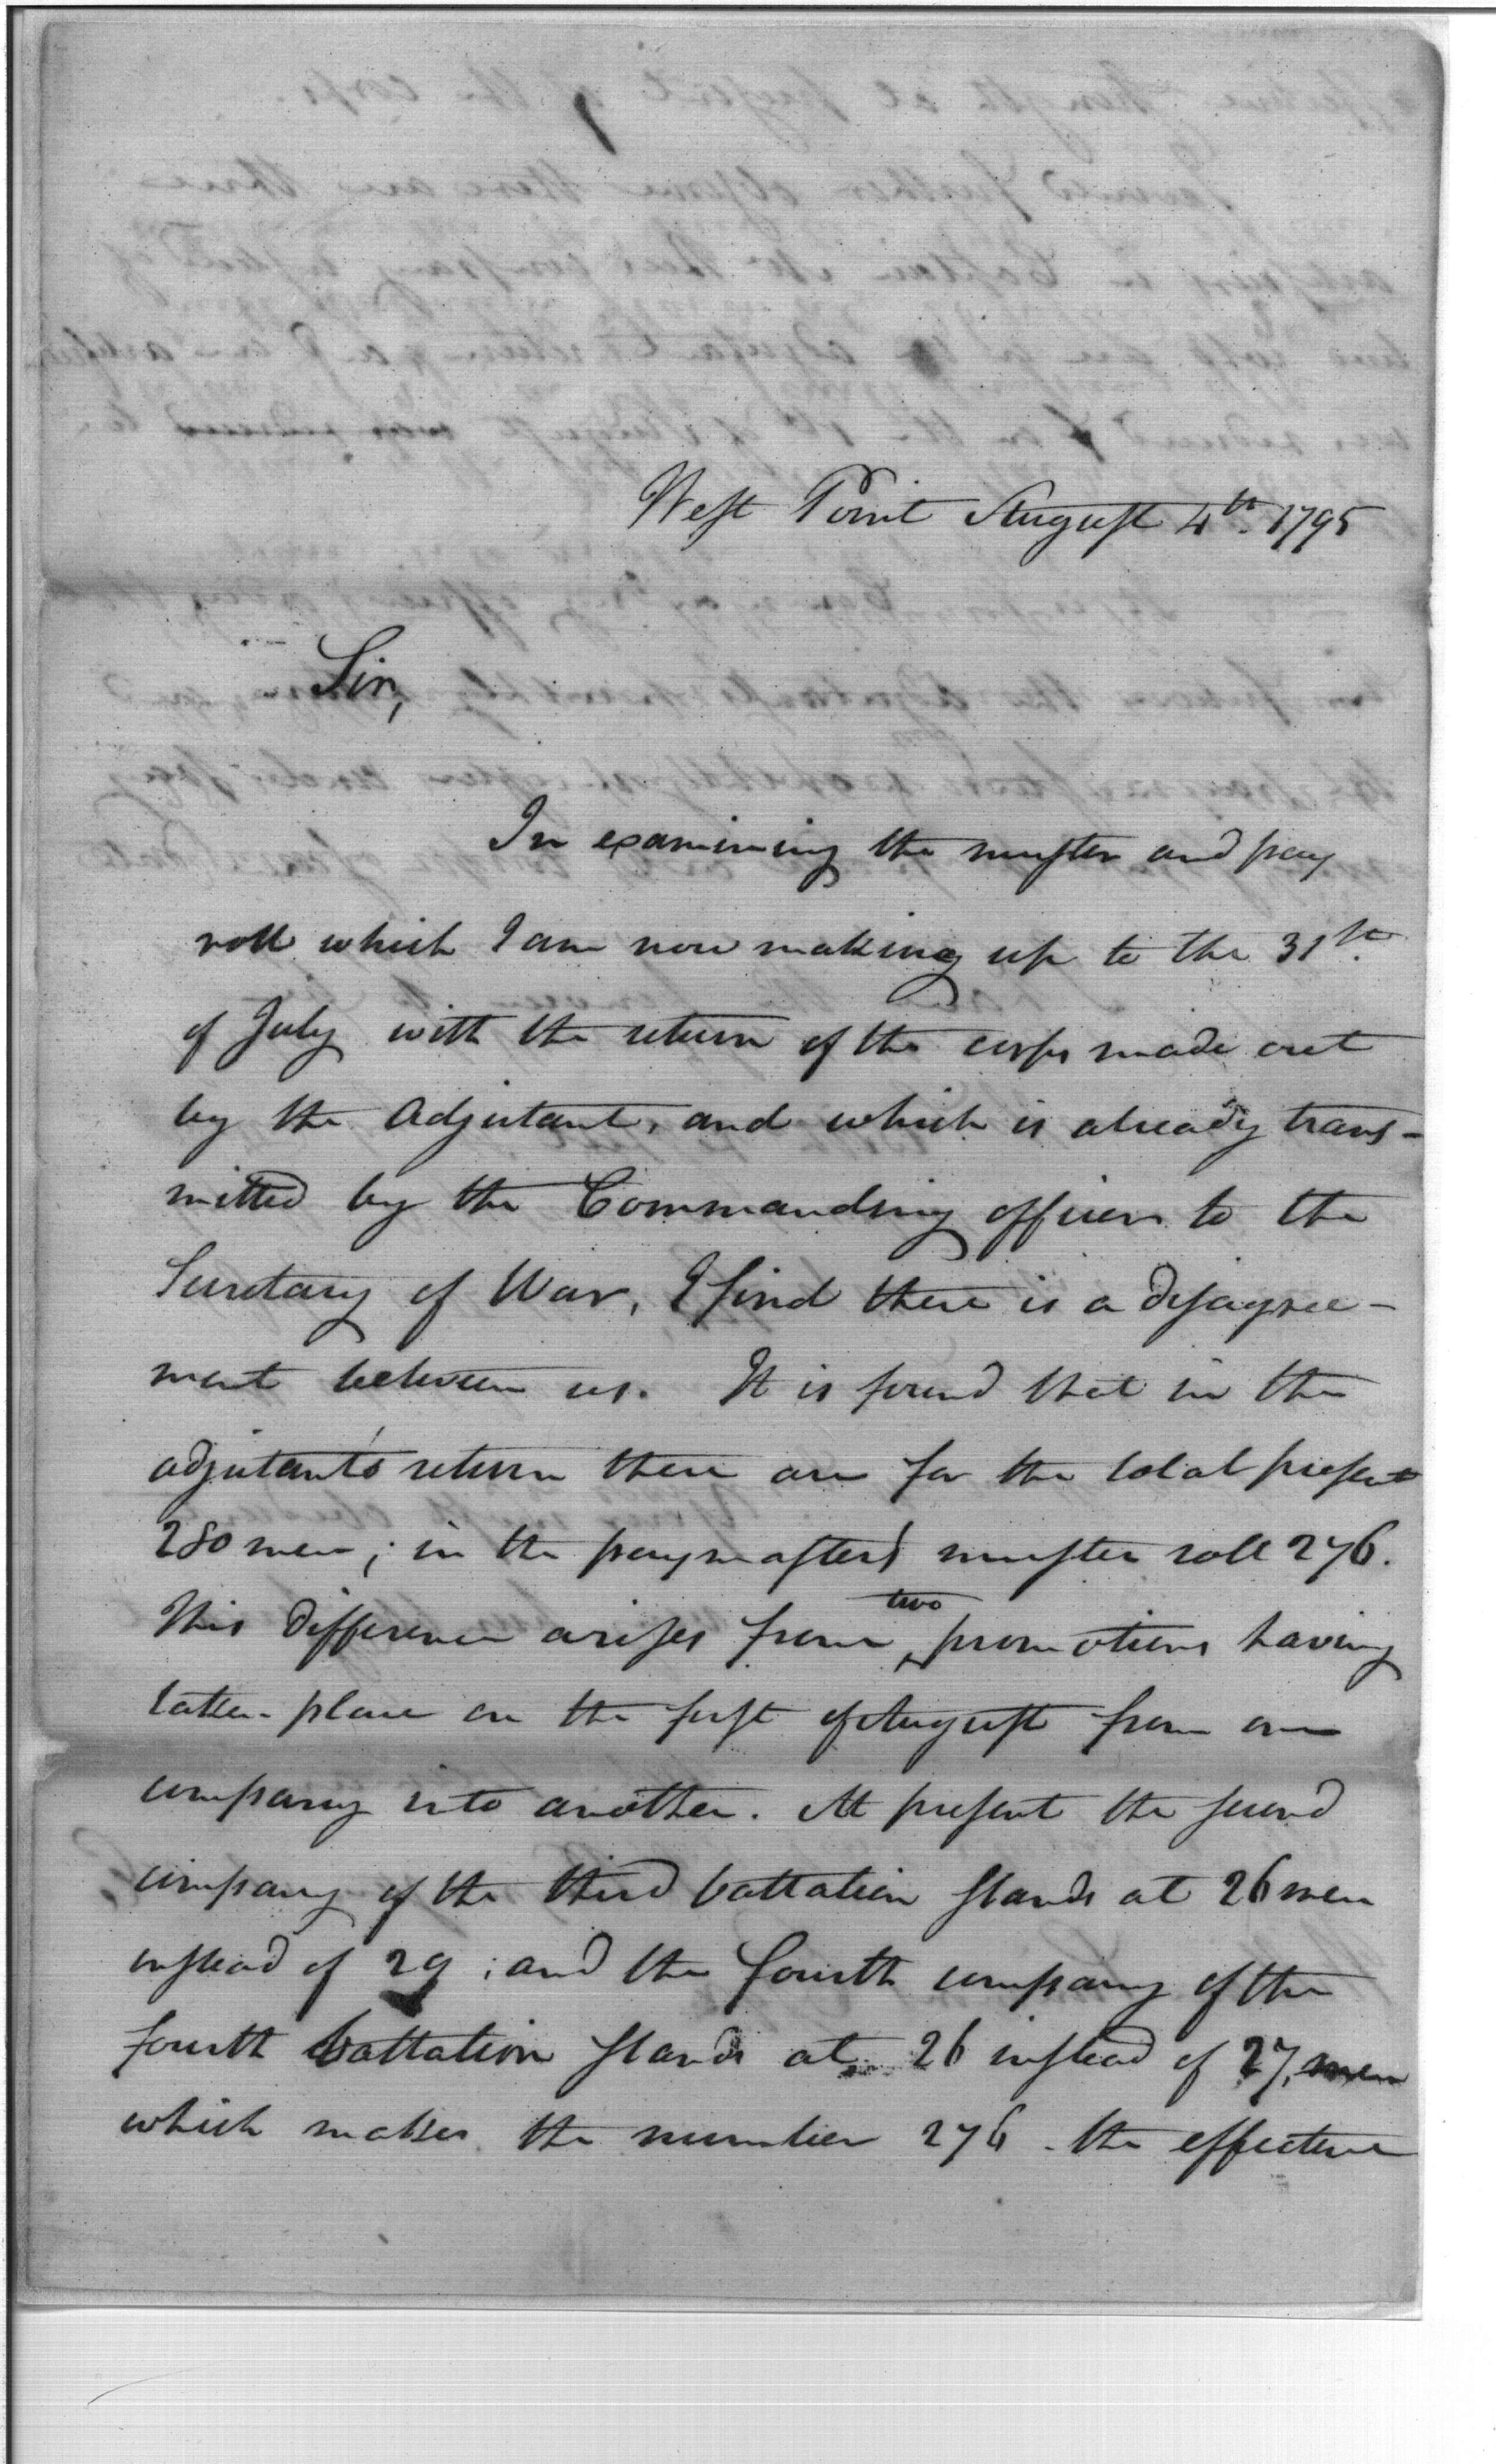 West Point August 4th. 1795
Sir,
In examining the muster and pay
roll which I am now making up to the 31st.
of July with the return of the corps made out
by the Adjutant, and which is already trans-
mitted by the Commanding officer to the
Secretary of War, I find there is a disagree-
ment between us. It is found that in the
adjutant's return there are for the total present
280 men; in the paymasters muster roll 276.
two
This difference arises from promotions having
taken place on the first of August from one
company into another. At present the second
company of the third battalion stands at 26 men
instead of 29; and the fourth company of the
fourth battalion stands at 26 instead of 27, men
which makes the number 276 - the effective